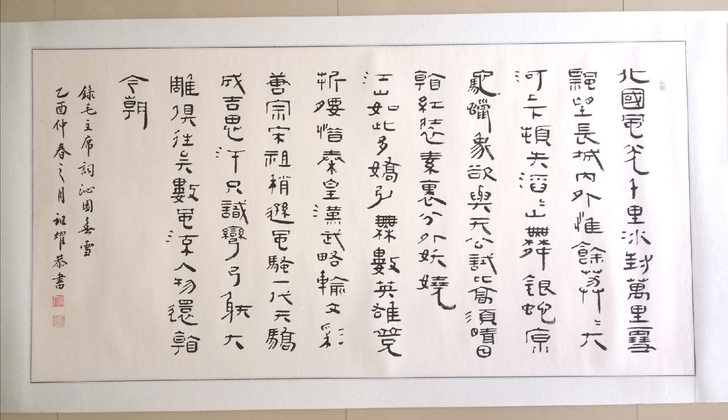 北國風光千里冰封萬里雪
飄望長城內外惟餘莽〻大
河上下頓失滔〻山舞銀蛇原
馳蠟象欲與天公試比高須晴日
看紅裝素裹分外妖嬈
江山如此多嬌引無數英雄競
折腰惜秦皇漢武略輸文彩
唐宗宋祖稍遜風騷一代天驕
成吉思汗只識彎弓射大
雕俱往矣數風流人物還看
今朝
錄毛主席詞沁園春雪
乙酉仲春之月祖耀恭書